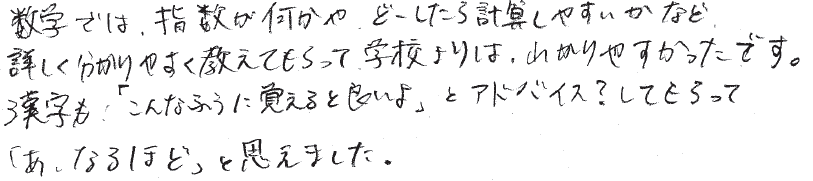 数学では、指数が何かや、どーしたら計算しやすいかなど、
詳しく分かりやすく教えてもらって学校よりは、わかりやすかったです。
漢字も「こんなふうに覚えると良いよ」とアドバイス?してもらって
「あ、なるほど」と思えました。